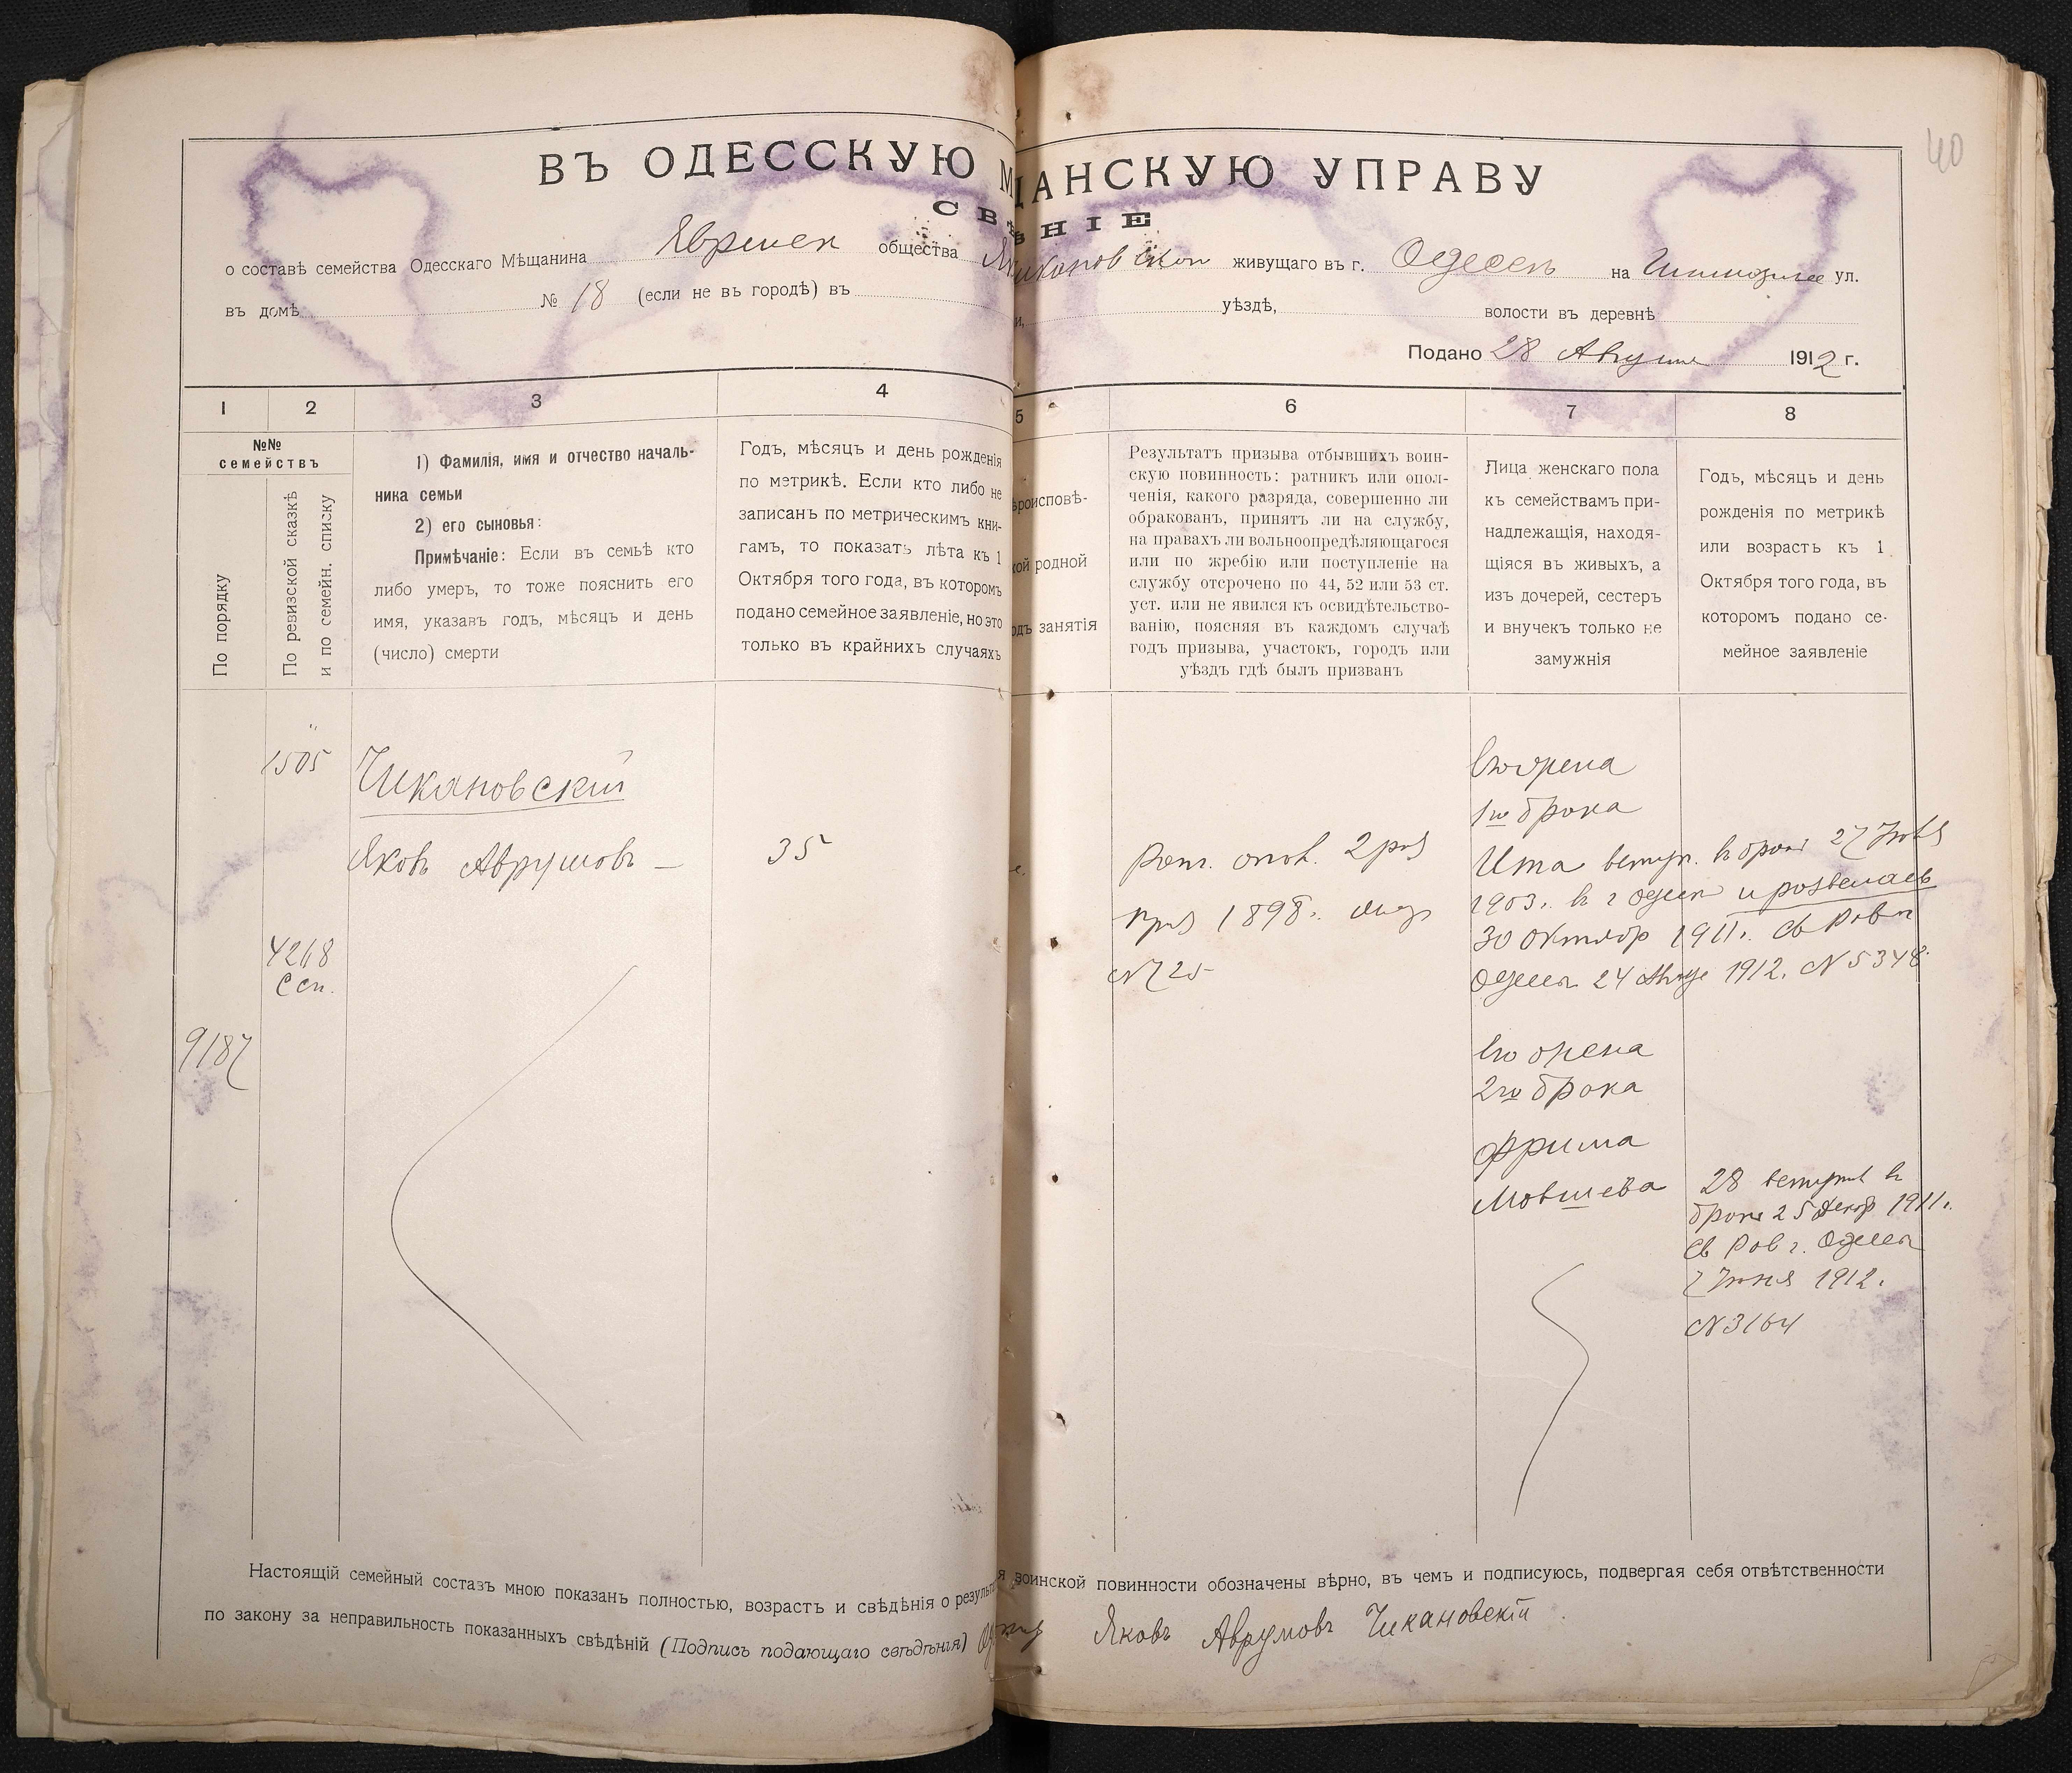 40
ВЪ ОДЕССКУЮ М ЩАНСКУЮ УПРАВУ
СВ ѢНІЕ
о составѣ семейства Одесскаго Мѣщанина Еврейск общества живущаго въ г. Одессѣ на ул.
въ домѣ № 18 (если не въ городѣ) въ и, уѣздѣ, волости въ деревнѣ
Подано 28 Августа 1912 г.
1 2 3 4 5 6 7 8
№№
семействъ
По порядку
По ревизской сказкѣ
и по семейн. списку
1) Фамилія, имя и отчество началь-
ника семьи
2) его сыновья:
Примѣчаніе: Если въ семьѣ кто
либо умеръ, то тоже пояснить его
имя, указавъ годъ, мѣсяцъ и день
(число) смерти
Годъ, мѣсяцъ и день рожденія
по метрикѣ. Если кто либо не
записанъ по метрическимъ кни-
гамъ, то показать лѣта къ 1
Октября того года, въ которомъ
подано семейное заявленіе, но это
только въ крайнихъ случаяхъ
ѣроисповѣ-
кой родной
одъ занятія
Результатъ призыва отбывшихъ воин-
скую повинность: ратникъ или опол-
ченія, какого разряда, совершенно ли
обракованъ, принятъ ли на службу,
на правахъ ли вольноопредѣляющагося
или по жребію или поступленіе на
службу отсрочено по 44, 52 или 53 ст.
уст. или не явился къ освидѣтельство-
ванію, поясняя въ каждомъ случаѣ
годъ призыва, участокъ, городъ или
уѣздъ гдѣ былъ призванъ
Лица женскаго пола
къ семействамъ при-
надлежащія, находя-
щіяся въ живыхъ, а
изъ дочерей, сестеръ
и внучекъ только не
замужнія
Годъ, мѣсяцъ и день
рожденія по метрикѣ
или возрастъ къ 1
Октября того года, въ
которомъ подано се-
мейное заявленіе
1505
Чикановскій
Яковъ Аврумовъ —
35
4268
С сп.
9187
Рат. опол. 2 раз
приз 1898 г.
№ 725
Его жена
1го брака
Ита вступ. въ бракъ 27
1903 г. въ г Одессѣ и розвелась
30 Октябр 1911 г. Св Рав г
Одессы 24 1912. № 5348
Его жена
2го брака
Фрима
Мовшева
28 вступил въ
бракъ 25 Декаб 1911 г.
Св Рав г. Одессы
7 Іюня 1912.
№ 3164
Настоящій семейный составъ мною показанъ полностью, возрастъ и свѣдѣнія о результ я воинской повинности обозначены вѣрно, въ чемъ и подписуюсь, подвергая себя отвѣтственности
по закону за неправильность показанныхъ свѣдѣній (Подпись подающаго свѣдѣнія) Яковъ Аврумовъ Чикановскій